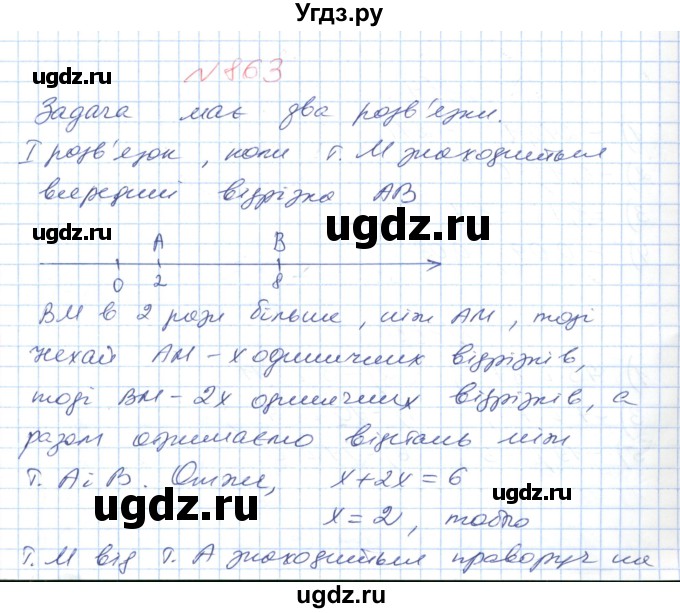 Угдз.ру
№ 863
ugdz.ru ugdz.ru
Задача має два розв'язки.
I розв'язок, коли т. М знаходиться
всередині відрізка АВ
ugdz.ru ugdz.ru
A B
0 2 8
ВМ в 2 рази більше, ніж АМ, тоді
нехай АМ – х одиничних відрізків,
тоді ВМ – 2х одиничних відрізків, а
разом отримаємо відстань між
т. А і В. Отже, х + 2х = 6
ugdz.ru ugdz.ru
х = 2, тобто
т. М від т. А знаходиться праворуч на
ugdz.ru